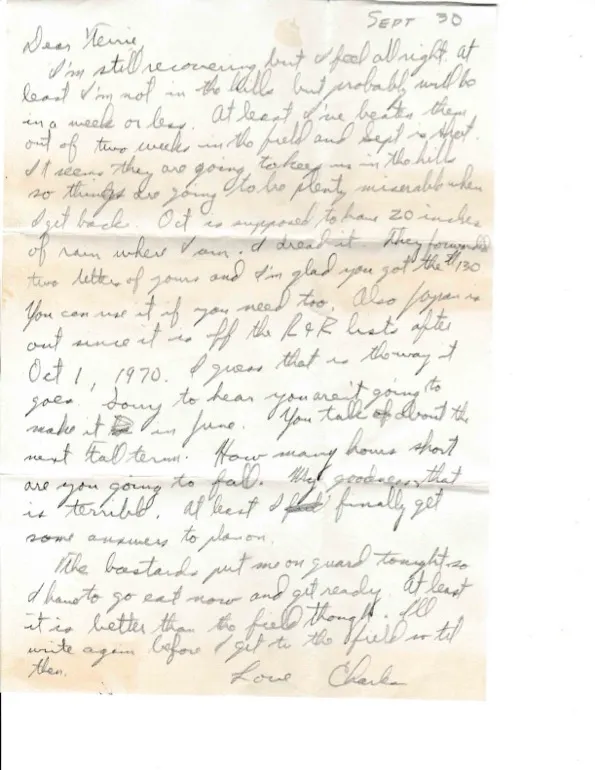 SEPT 30
Dear Terrie,
I'm still recovering but I feel all right. At
least I'm not in the hills but probably will be
in a week or less. At least I've beaten them
out of two weeks in the field and Sept is shot.
It seems they are going to keep us in the hills
so things are going to be plenty miserable when
I get back. Oct is supposed to have 20 inches
of rain where I am. I dread it. They forwarded
two letters of yours and I'm glad you got the $130
You can use it if you need too. Also Japan is
out since it is off the R & R lists after
Oct 1, 1970. I guess that is the way it
goes. Sorry to hear you aren't going to
make it in June. You talk about the
next Fall term. How many hours short
are you going to fall. My goodness, that
is terrible. At least I finally get
some answers to plan on.
The bastards put me on guard tonight so
I have to go eat now and get ready. At least
it is better than the field though. I'll
write again before I get to the field so til
then.
Love Charles